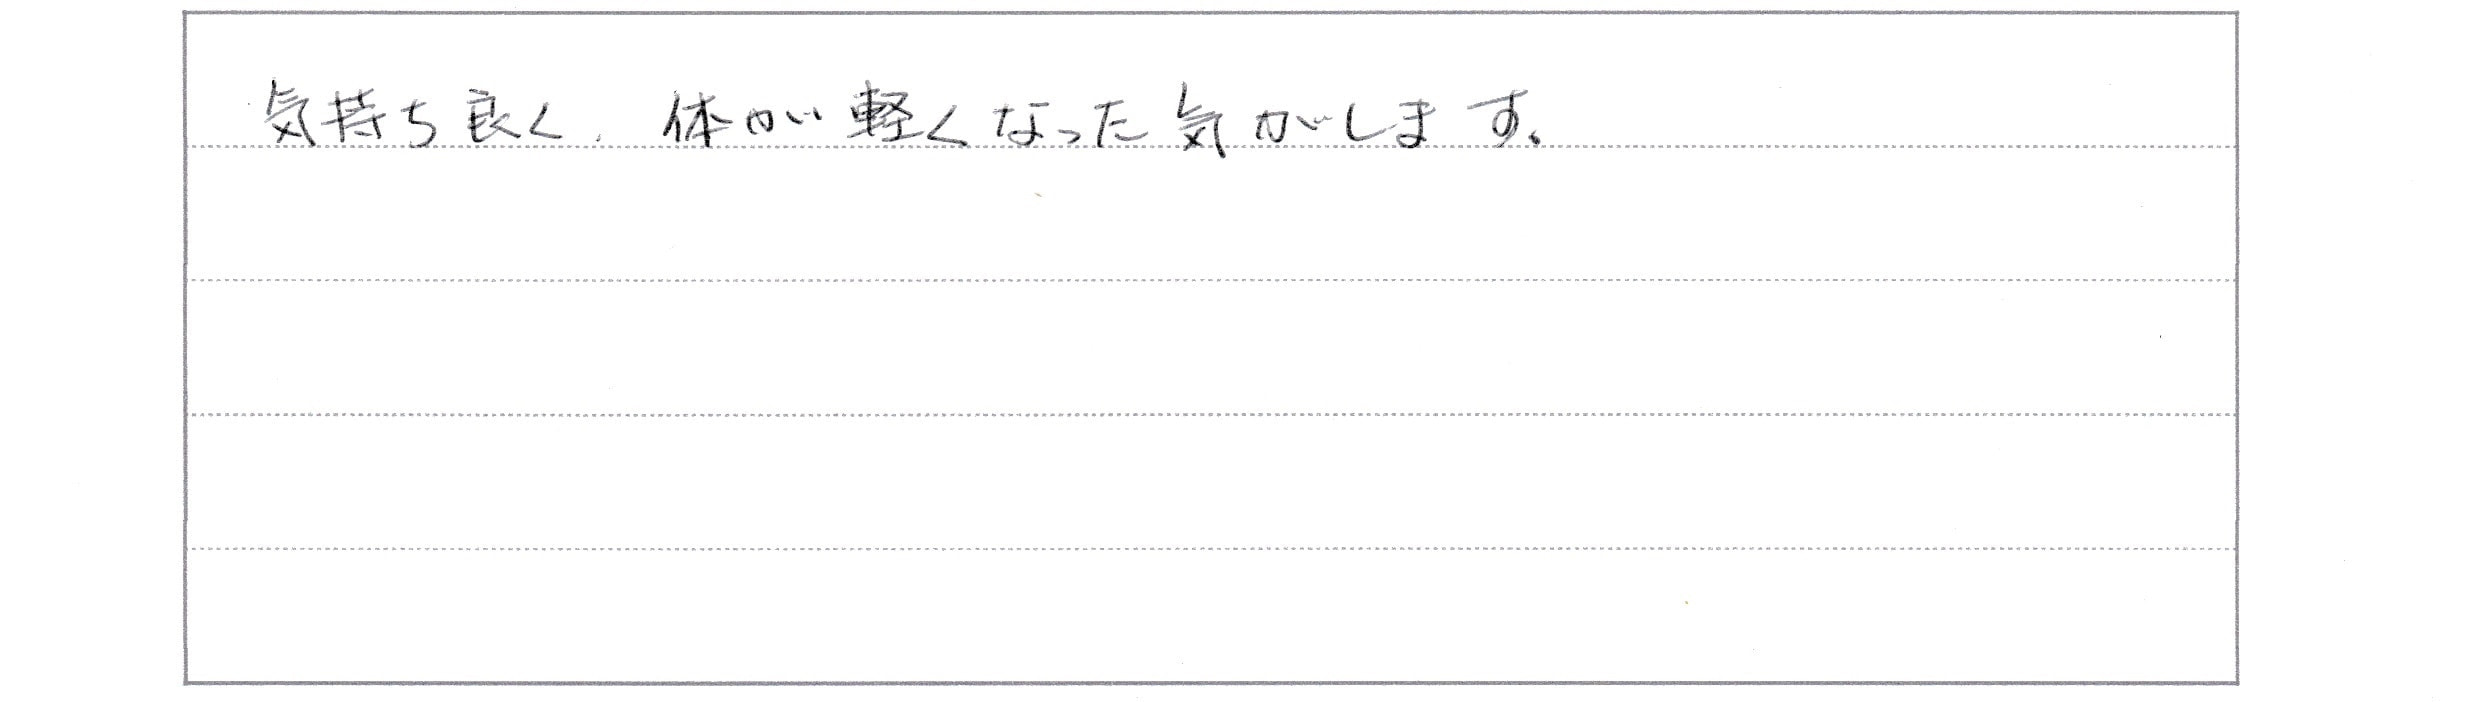 気持ち良く、体が軽くなった気がします。